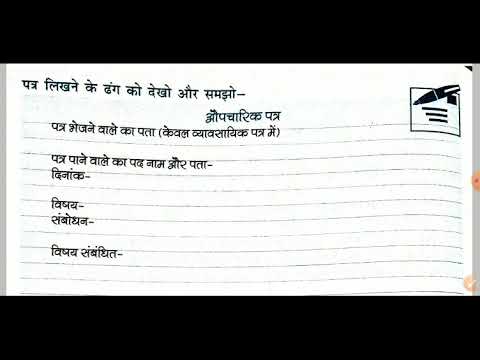 पत्र लिखने के ढंग को देखो और समझो–
औपचारिक पत्र
पत्र भेजने वाले का पता (केवल व्यावसायिक पत्र में)
पत्र पाने वाले का पद नाम और पता-
दिनांक-
विषय-
संबोधन-
विषय संबंधित-